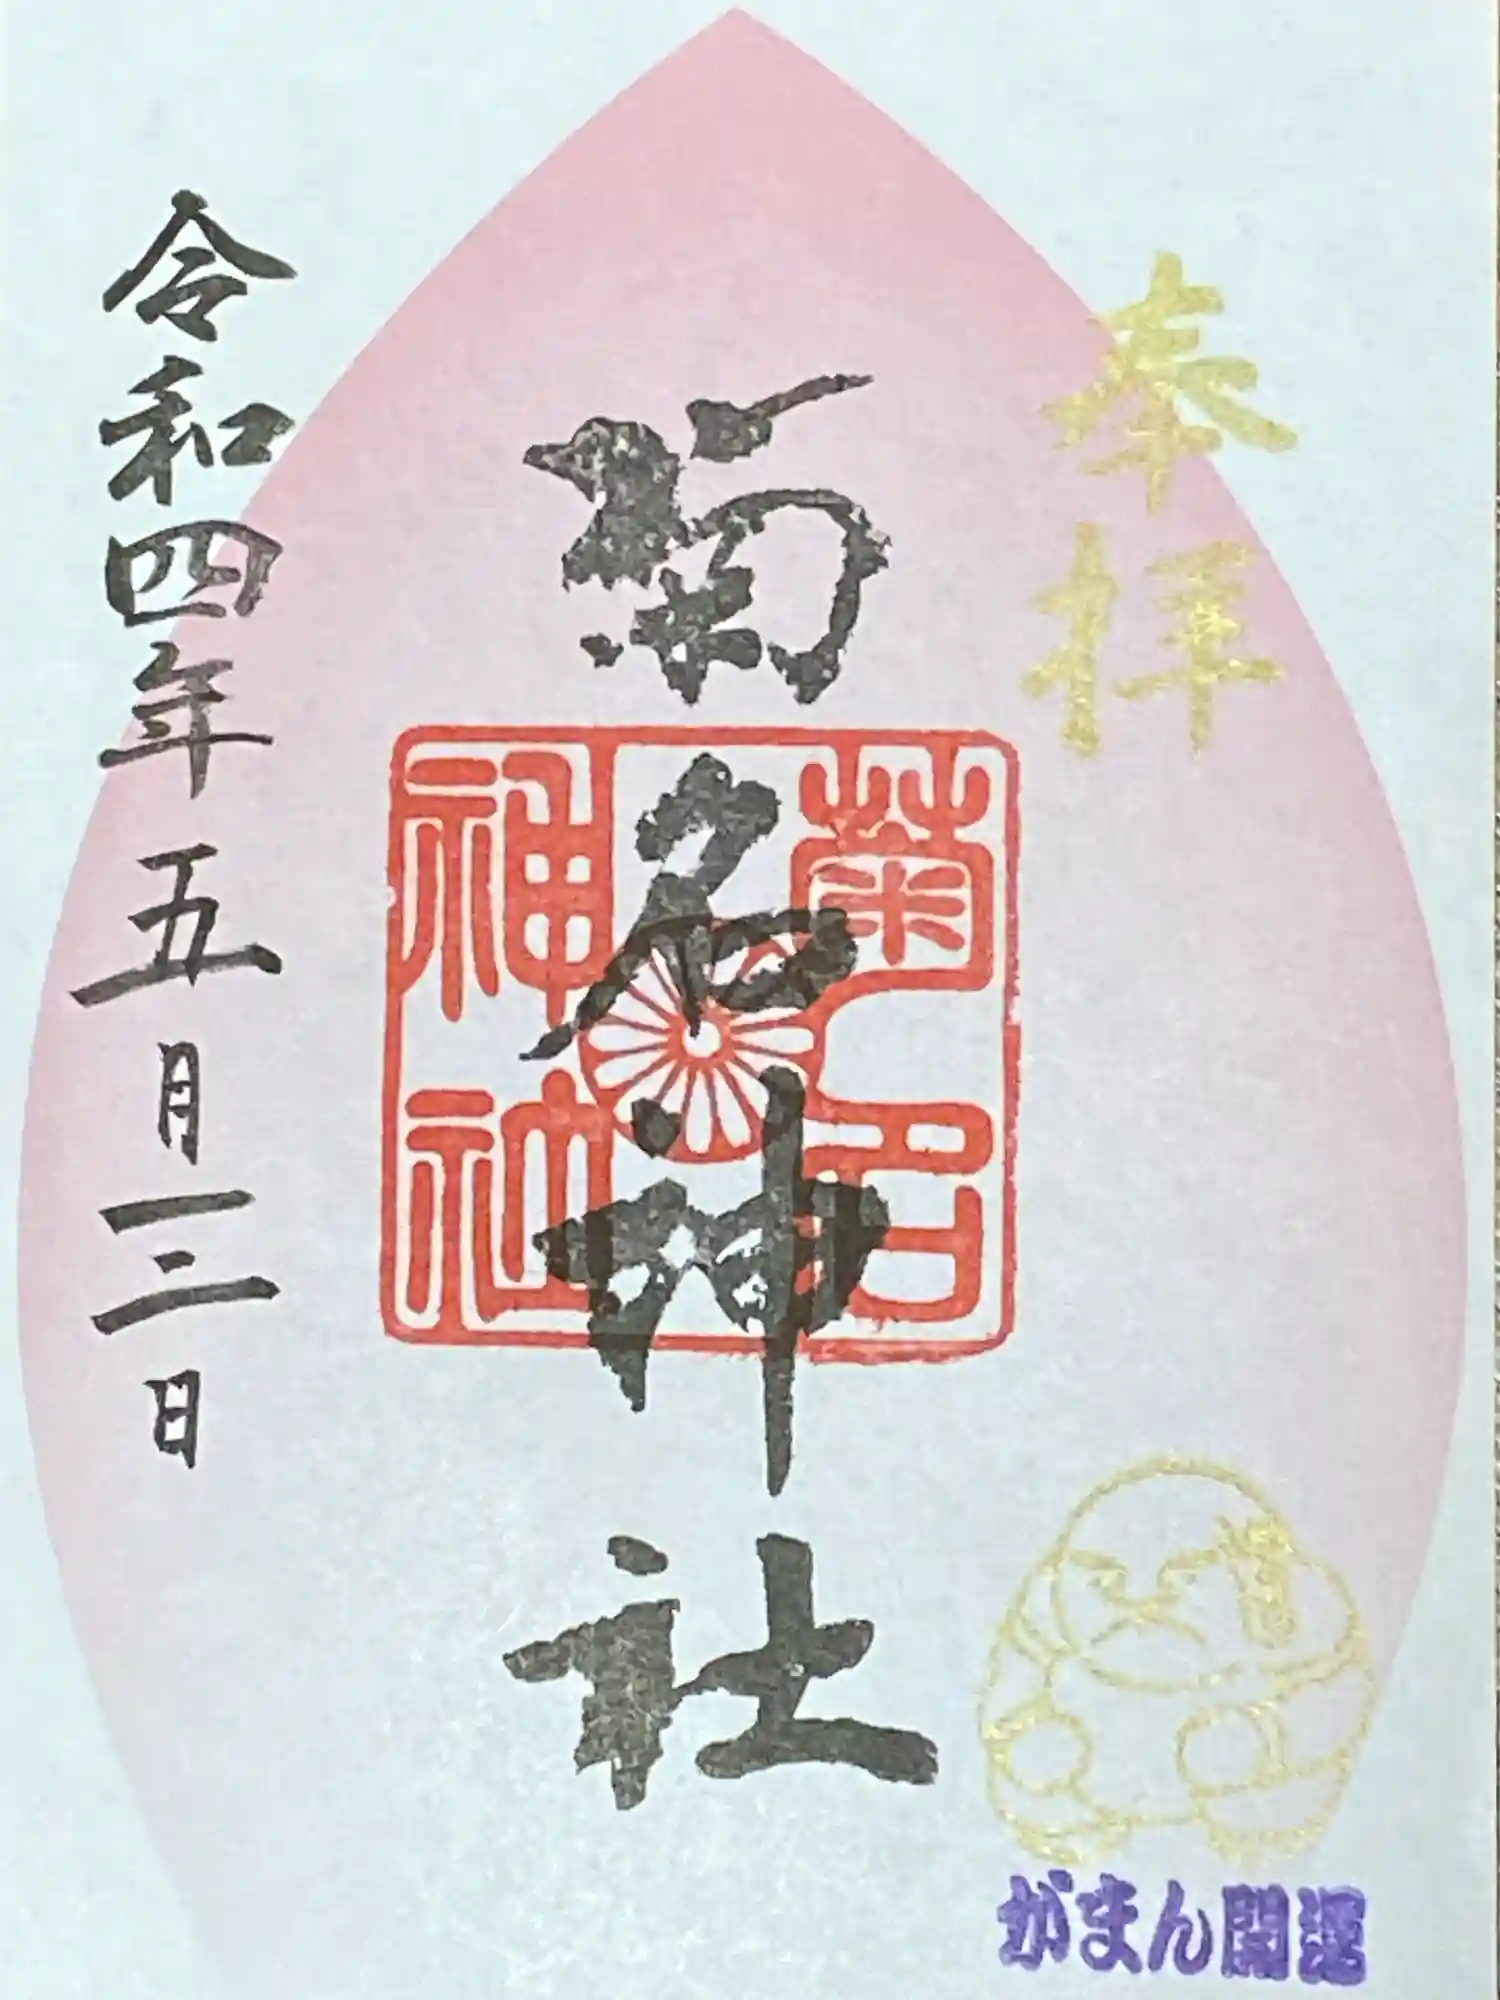 奉拝
菊名神社
菊名
神社
令和四年五月三日
がまん開運